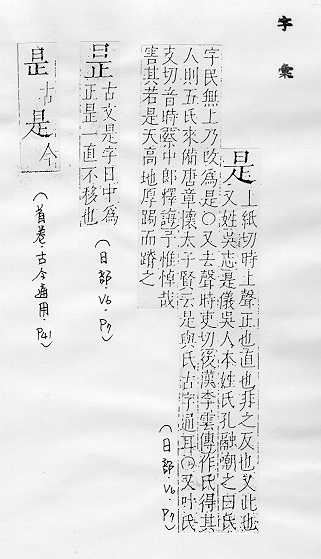 字彙
是 上紙切時上聲正也直也非之反也又此也
又姓吳志是儀吳人本姓氏孔融嘲之曰氏
字民無上乃改為是〇又去聲時吏切後漢李雲傳作氏得其
人則五氏來備唐章懷太子賢云是與氏古字通耳〇又叶氏
支切音時蔡中郎釋誨予惟悼哉
害其若是天高地厚跼而蹐之
(日部.V6.P7)
昰 古文是字日中為
正昰一直不移也
(日部.V6.P7)
昰古
是今
(首卷.古今通用.P41)